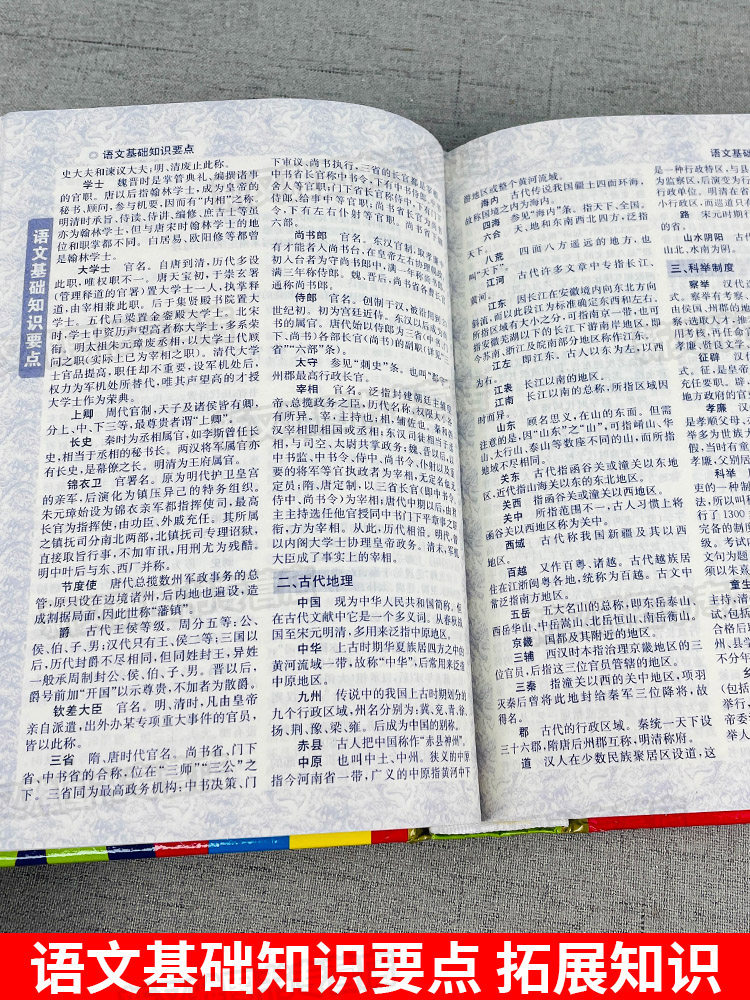 语文基础知识要点
语文基础知识要点
史大夫和谏议大夫;明、清废止此称。
学士 魏晋时是掌管典礼、编撰诸事
的官职。唐以后指翰林学士,成为皇帝的
秘书、顾问,参与机要,因而有“内相”之称。
明清时承旨、侍读、侍讲、编修、庶吉士等虽
亦为翰林学士,但与唐宋时翰林学士的地
位和职掌都不同。白居易、欧阳修等都曾
是翰林学士。
大学士 官名。自唐到清,历代多设
此职,唯权职不一。唐天宝初,于崇玄署
(管理释道的官署)置大学士一人,执掌释
道,由宰相兼此职。后于集贤殿书院置大
学士。五代后梁置金銮殿大学士。北宋
时,学士中资历声望高者称大学士,多系荣
衔。明太祖朱元璋废丞相,以大学士代顾
问之职(实际上已为宰相之职)。清代大学
士官品提高,职任却不重要,设军机处后,
权力为军机处所替代,唯其声望高的才授
大学士作为荣典。
上卿 周代官制,天子及诸侯皆有卿,
分上、中、下三等,最尊贵者谓“上卿”。
长史 秦时为丞相属官,如李斯曾任长
史,相当于丞相的秘书长。两汉将军属官亦
有长史,是幕僚之长。明清为王府属官。
锦衣卫 官署名。原为明代护卫皇宫
的亲军,后演化为镇压异己的特务组织。
朱元璋始设为锦衣亲军都指挥使司,最高
长官为指挥使,由功臣、外戚充任。其所属
之镇抚司分南北两部,北镇抚司专理诏狱,
直接取旨行事,不加审讯,用刑尤为残酷。
明中叶后与东、西厂并称。
节度使 唐代总揽数州军政事务的总
管,原只设在边境诸州,后内地也遍设,造
成割据局面,因此世称“藩镇”。
爵 古代王侯等级。周分五等:公、
侯、伯、子、男;汉代只有王、侯二等;三国以
后,历代封爵不尽相同,但同姓封王,异姓
一般承周制封公、侯、伯、子、男。晋以后,
爵号前加“开国”以示尊贵,不加者为散爵。
钦差大臣 官名。明、清时,凡由皇帝
亲自派遣,出外办某专项重大事件的官员,
皆以此称。
三省 隋、唐时代官名。尚书省、门下
省、中书省的合称,位在“三师”“三公”之
下。三省同为最高政务机构:中书决策、门
下审议、尚书执行,三省的长官都是宰
相。中书省长官称中书令,下有中书侍郎、中书
舍人等官职;门下省长官称侍中,下有门下
侍郎、给事中等官职;尚书省长官为尚书
令,下有左右仆射等官职。
尚书郎 官名。东汉官制,取孝廉中
有才能者入尚书台,在皇帝左右协理政务,
初入台者为守尚书郎中,满一年称尚书郎,
满三年称侍郎。魏、晋后,尚书省各曹长官
通称尚书郎。
侍郎 官名。创制于汉,
世纪初。初为宫廷近侍。东汉以后成为尚
书的属官。唐代始以侍郎为三省(中书、门
下、尚书)各部长官(尚书)的副职(详见“三
省”“六部”条)。
太守 参见“刺史”条,也叫
州郡最高行政长官。
宰相 官名。泛指封建朝廷主辅皇
帝、总揽政务之臣,历代名称、权限大小各
有所异。宰,主持也;相,辅佐也。秦和西
汉宰相即相国或丞相;东汉司徒相当于丞
相,与司空、太尉共掌政务;魏、晋以后,以
中书监、中书令、侍中、尚书令、仆射以及重
要的将军等官执政者为宰相,无定名亦无
定员;隋、唐定制,以三省长官(即中书令、
侍中、尚书令)为宰相;唐代中期以后,由君
主主持选任他官授同中书门下平章事之职
衔,方为宰相。从此,历代相沿。明代、清
以内阁大学士协理皇帝政务。清末,军机
大臣成了事实上的宰相。
二、古代地理
中国 现为中华人民共和国简称,但
在古代文献中它是一个多义词。从春秋战
国至宋元明清,多用来泛指中原地区。
中华 上古时期华夏族居四方之中的
黄河流域一带,故称“中华”,后常用来泛指
中原地区。
九州 传说中的我国上古时期划分的
九个行政区域,州名分别为:冀、兖、青、徐、
扬、荆、豫、梁、雍。后成为中国的别称。
赤县 古人把中国称作“赤县神州”。
中原 也叫中土、中州。狭义的中原
指今河南省一带,广义的中原指黄河中下
语文基础
游地区或整个黄河流域。
海内 古代传说我国疆土四面环海,
故称国境之内为海内。
四海 参见“海内”条。指天下、全国。
六合 天、地和东南西北四方,泛指
天下。
八荒 四面八方遥远的地方,也
叫“天下”。
江河 古代许多文章中专指长江、
黄河。
江东 因长江在安徽境内向东北方向
斜流,而以此段江为标准确定东西和左右。
所指区域有大小之分,可指南京一带,也可
指安徽芜湖以下的长江下游南岸地区,即
今苏南、浙江及皖南部分地区称作江东。
江左 即江东。古人以东为左,以西
为右。
江表 长江以南的地区。
江南 长江以南的总称,所指区域因
时而异。
山东 顾名思义,在山的东面。但需
注意的是,因“山东”之“山”,可指崤山、华
山、太行山、泰山等数座不同的山,而所指
地域不尽相同。
关东 古代指函谷关或潼关以东地
区,近代指山海关以东的东北地区。
关西 指函谷关或潼关以西的地区。
关中 所指范围不一,古人习惯上将
函谷关以西地区称为关中。
西域 古代称我国新疆及其以西
地区。
百越 又作百粤、诸越。古代越族居
住在江浙闽粤各地,统称为百越。古文中
常泛指南方地区。
五岳 五大名山的总称,即东岳泰山、
西岳华山、中岳嵩山、北岳恒山、南岳衡山。
京畿 国都及其附近的地区。
三辅 西汉时本指治理京畿地区的三
位官员,后指这三位官员管辖的地区。
三秦 指潼关以西的关中地区,项羽
灭秦后曾将此地封给秦军三位降将,故
得名。
郡 古代的行政区域。秦统一天下设
三十六郡,隋唐后州郡互称,明清称府。
道 汉人在少数民族聚居区设道,这
是一种行政特区,与县
为监察区,后演变为行
行政单位。明清在省
小行政区,而巡道只有
路 宋元时期行
山水阴阳 古代
山北、水南为阴。
三、科举制度
察举 汉代选
察举有考察、
由侯国、州郡的地
察、选取人才,推
考核,任以官职。
孝廉、贤良文学、
征辟 汉代
式。征,是皇帝
充任要职。辟,
地方政府的官
孝廉 汉
是孝顺父母、
举多为世族大
假,当时有童
孝廉,父别居
科举
史的一种制
法,所以叫
行了 1300
完备的制
级。考试内
文句为题
须以朱熹
童生
主持,清
语文基础知识要点 拓展知识